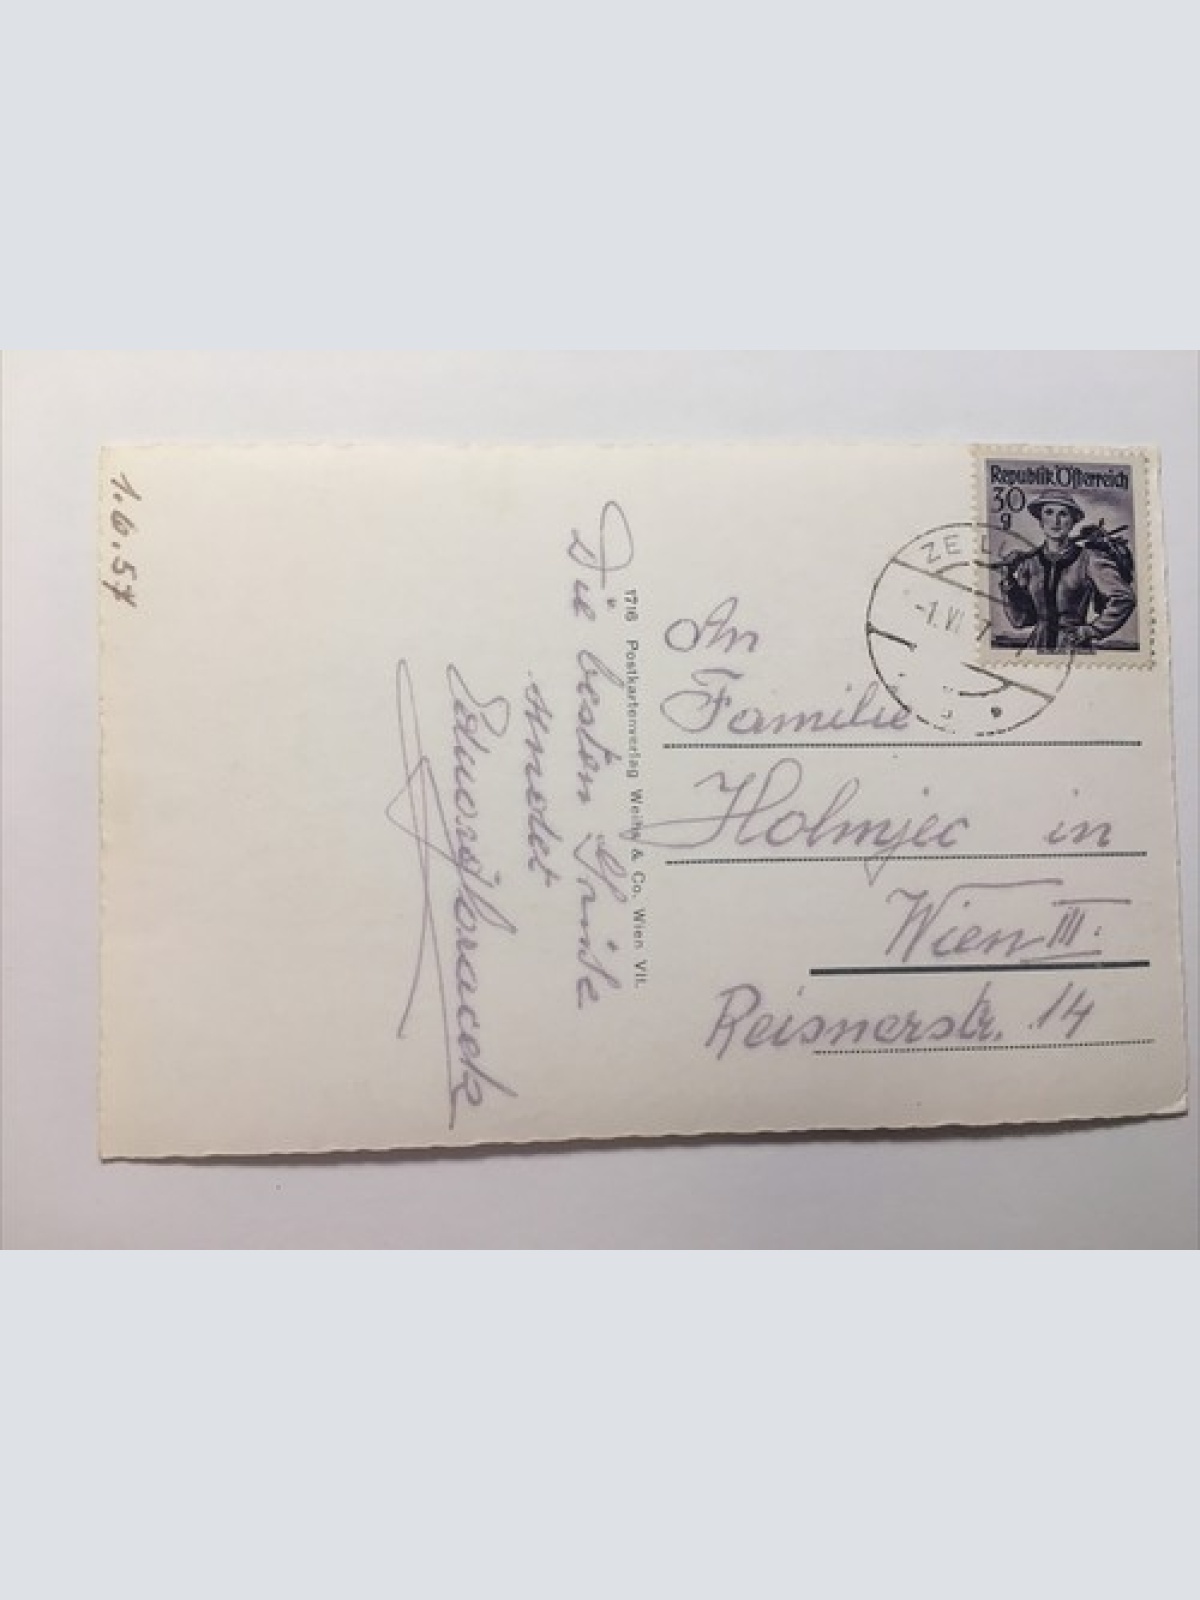 1.6.57
Die besten Grüße
sendet
1716 Postkartenverlag Weihs & Co. Wien VII.
Republik Österreich
30
g
ZELL
-1.VI
An
Familie
Holmjec in
Wien III.
Reisnerstr. 14